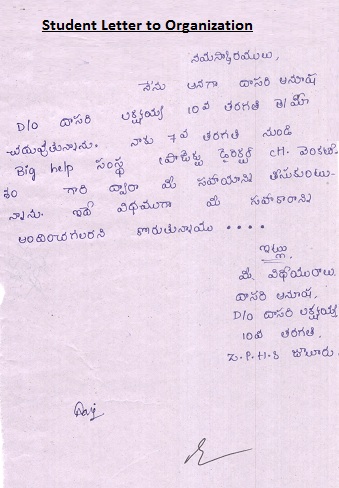 Student Letter to Organization
నమస్కారములు,
నేను అనగా దాసరి అనూష
D/o దాసరి లక్ష్మయ్య 10వ తరగతి
చదువుతున్నాను. నాకు 7వ తరగతి నుండి
Big help సంస్థ ప్రాజెక్టు డైరెక్టర్ CH. వెంకటే-
శం గారి ద్వారా మీ సహాయాన్ని తీసుకుంటు-
న్నాను. ఇదే విధముగా మీ సహకారాన్ని
అందించగలరని కోరుతున్నాను ....
ఇట్లు
మీ విధేయురాలు.
దాసరి అనూష,
D/o దాసరి లక్ష్మయ్య
10వ తరగతి,
Z.P.H.S